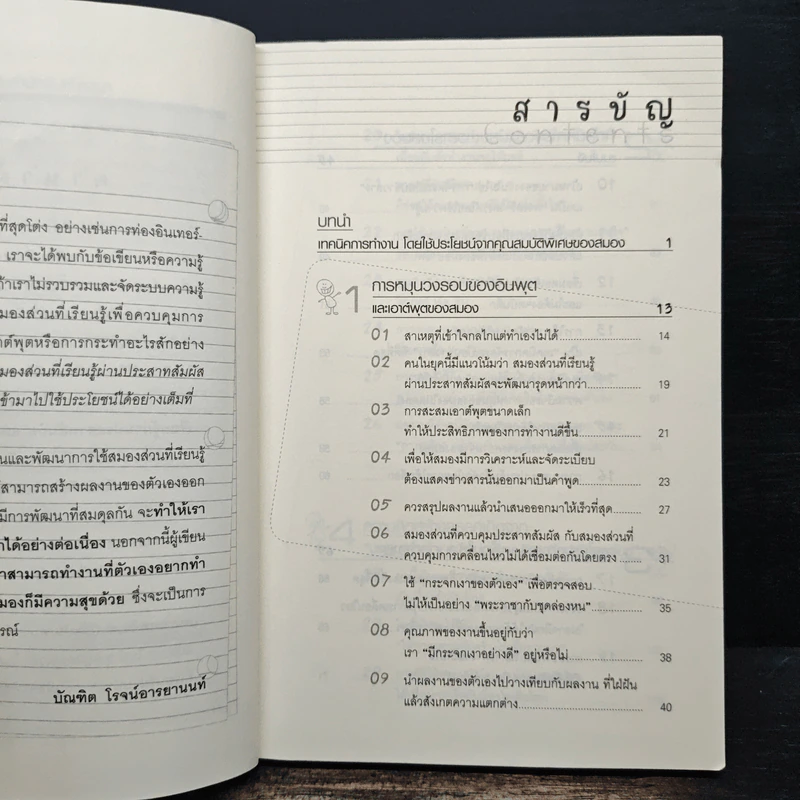 ที่สุดโต่ง อย่างเช่นการท่องอินเทอร์-
เราจะได้พบกับข้อเขียนหรือความรู้
ถ้าเราไม่รวบรวมและจัดระบบความรู้
สมองส่วนที่เรียนรู้เพื่อควบคุมการ
อาต์พุตหรือการกระทำอะไรสักอย่าง
มองส่วนที่เรียนรู้ผ่านประสาทสัมผัส
ข้ามาไปใช้ประโยชน์ได้อย่างเต็มที่
นและพัฒนาการใช้สมองส่วนที่เรียนรู้
สามารถสร้างผลงานของตัวเองออก
มีการพัฒนาที่สมดุลกัน จะทำให้เรา
าได้อย่างต่อเนื่อง นอกจากนี้ผู้เขียน
าสามารถทำงานที่ตัวเองอยากทำ
มองก็มีความสุขด้วย ซึ่งจะเป็นการ
รณ์
บัณฑิต โรจน์อารยานนท์
สารบัญ
Contents
บทนำ
เทคนิคการทำงาน โดยใช้ประโยชน์จากคุณสมบัติพิเศษของสมอง 1
1 การหมุนวงรอบของอินพุต
และเอาต์พุตของสมอง 13
01 สาเหตุที่เข้าใจกลไกแต่ทำเองไม่ได้ 14
02 คนในยุคนี้มีแนวโน้มว่า สมองส่วนที่เรียนรู้
ผ่านประสาทสัมผัสจะพัฒนารุดหน้ากว่า 19
03 การสะสมเอาต์พุตขนาดเล็ก
ทำให้ประสิทธิภาพของการทำงานดีขึ้น 21
04 เพื่อให้สมองมีการวิเคราะห์และจัดระเบียบ
ต้องแสดงข่าวสารนั้นออกมาเป็นคำพูด 23
05 ควรสรุปผลงานแล้วนำเสนอออกมาให้เร็วที่สุด 27
06 สมองส่วนที่ควบคุมประสาทสัมผัส กับสมองส่วนที่
ควบคุมการเคลื่อนไหวไม่ได้เชื่อมต่อกันโดยตรง 31
07 ใช้ "กระจกเงาของตัวเอง" เพื่อตรวจสอบ
ไม่ให้เป็นอย่าง "พระราชากับชุดล่องหน" 35
08 คุณภาพของงานขึ้นอยู่กับว่า
เรา "มีกระจกเงาอย่างดี" อยู่หรือไม่ 38
09 นำผลงานของตัวเองไปวางเทียบกับผลงาน ที่ใฝ่ฝัน
แล้วสังเกตความแตกต่าง 40